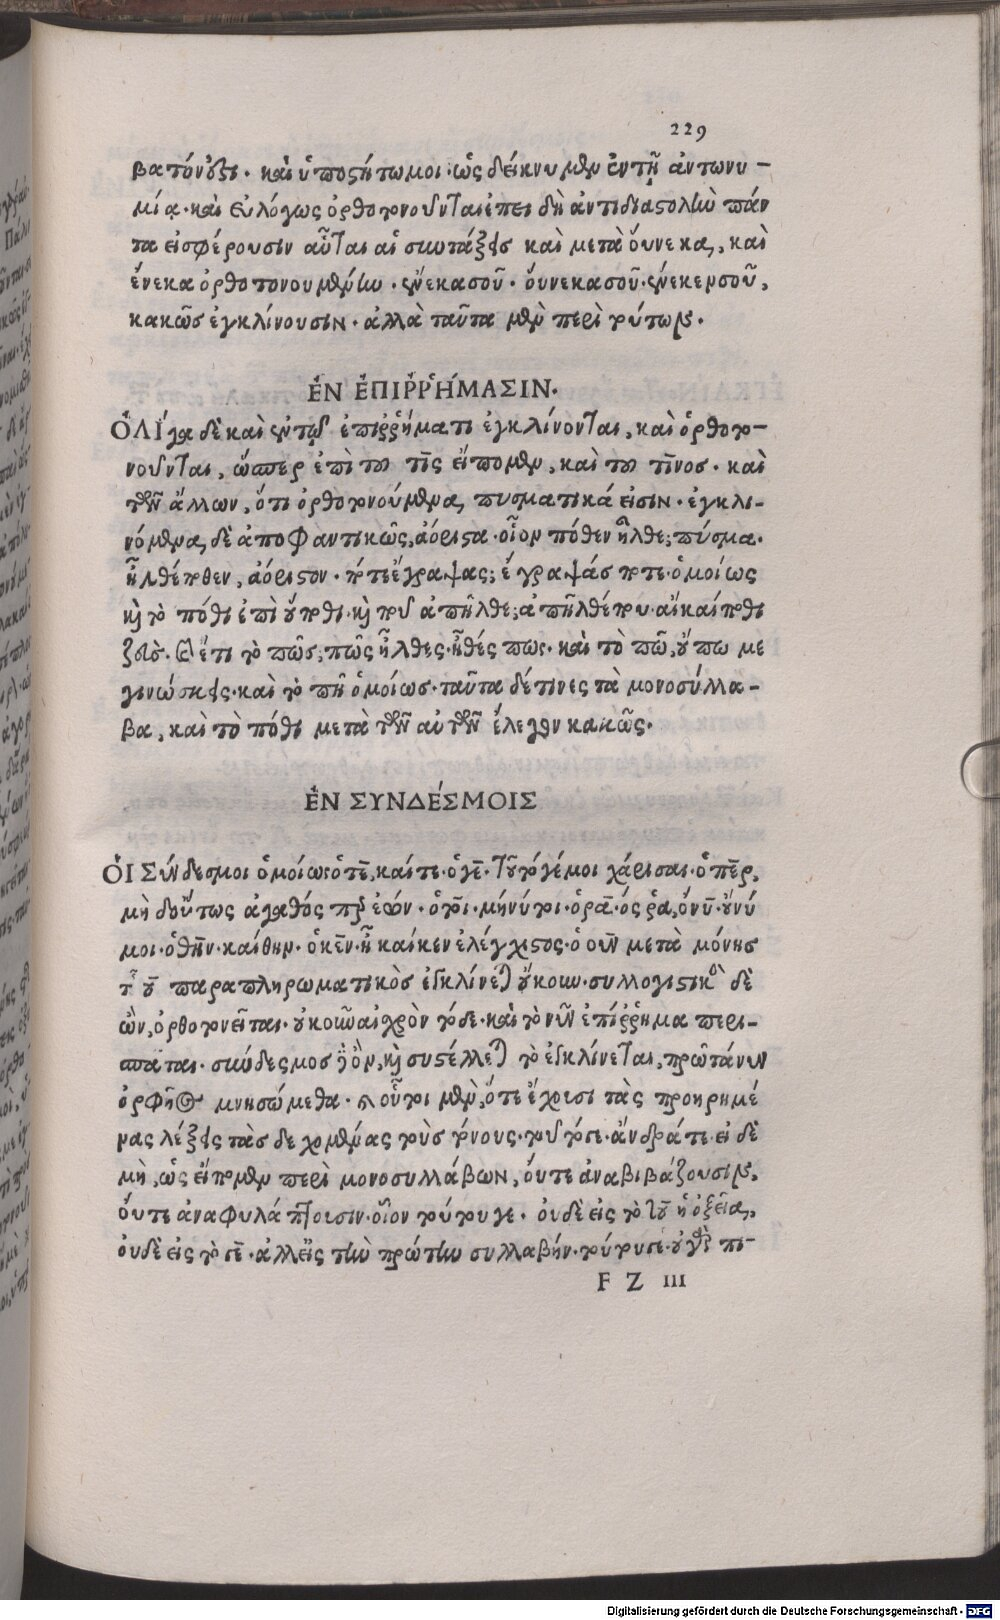 229
βατόνδξι. καὶ ὑποζήτωμοι. ὡς δείκνυμεν ἐν τῇ ἀντωνυ-
μίᾳ. καὶ εὐλόγως ὀρθοτονοῦνται ἐπειδὴ ἀντιδιαστολὴν πάν
τα εἰσφέρουσιν αὗται αἱ συντάξεις καὶ μετὰ οὕνεκα, καὶ
ἕνεκα ὀρθοτονουμένων. ἕνεκα σοῦ. οὕνεκα σοῦ.
κακῶς ἐγκλίνουσιν. ἀλλὰ ταῦτα μὲν περὶ τούτων.
ἘΝ ἘΠΙῤῬΉΜΑΣΙΝ.
ὈΛΊγα δὲ καὶ ἐν τῷ ἐπιῤῥήματι ἐγκλίνονται, καὶ ὀρθοτο-
νοῦνται, ὥσπερ ἐπὶ τοῦ τὶς εἴπομεν, καὶ τοῦ τῖνος. καὶ
τῶν ἄλλων, ὅτι ὀρθοτονούμενα, πυσματικά εἰσιν. ἐγκλι-
νόμενα, δὲ ἀποφαντικῶς, ἀόριστα. οἷον πόθεν ἦλθε; πύσμα.
ἦλθέ ποθεν, ἀόριστον. πότε ἔγραψας; ἔγραψάς ποτε. ὁμοίως
καὶ τὸ πόθι ἐπὶ οὔποθι. καὶ ποῦ ἀπῆλθε; ἀπῆλθέ που. αἴ καί ποθι
ζεὺς. καὶ ἔτι τὸ πῶς, πῶς ἦλθες. ἦθές πως. καὶ τὸ πῶ, οὔπω με
γινώσκεις. καὶ τὸ πῆ ὁμοίως. ταῦτα δέ τινες τὰ μονοσύλλα-
βα, καὶ τὸ πόθι μετὰ τῶν αὐτῶν ἔλεγον κακῶς.
ἘΝ ΣΥΝΔΈΣΜΟΙΣ
ὉΙ Σύνδεσμοι ὁμοίως ὁ τὲ, καίτε. ὁ γὲ. τοῦτό γέ μοι χάρισαι. ὁ πὲρ,
μὴ δ' οὕτως ἀγαθός περ ἐών. ὁ τοὶ. μήνύ τοι. ὁ ρὰ. ός ρα, ὁ νὺ. οὔ νύ
μοι. ὁ θὴν. καί θην. ὁ κὲν. ἢ καί κεν ἐλέγχιστος. ὁ οὖν μετὰ μόνης
τῆς οὐ παραπληρωματικὸς ἐγκλίνεται οὔκουν. συλλογιστικὸς δὲ
ὢν, ὀρθοτονεῖται. οὐκοῦν αἰχρὸν τόδε. καὶ τὸ νῦν ἐπίῤῥημα περι-
σπᾶται. σύνδεσμος γὰρ ὂν, καὶ συστέλλεται τὸ ἐγκλίνεται, πρῶτά νυν
ὀρφῆος μνησώμεθα. πλούτοι μὲν, ὅτε ἔχουσι τὰς προηρημέ
νας λέξεις τὰς δεχομένας τοὺς τόνους. τοῦ τόσε. ἄνδρά τε. εἰ δὲ
μὴ, ὡς εἴπομεν περὶ μονοσυλλάβων, οὔτε ἀναβιβάζουσιν,
οὔτε ἀναφυλάττουσιν. οἷον τούτου γε. οὐδὲ εἰς τὸ τοῦ ἡ ὀξεῖα,
οὐδὲ εἰς τὸ σε. ἀλλ' εἰς τὴν πρώτην συλλαβήν. τούτου σε. οὐ γὰρ πι-
F Z III
Digitalisierung gefördert durch die Deutsche Forschungsgemeinschaft · DFG